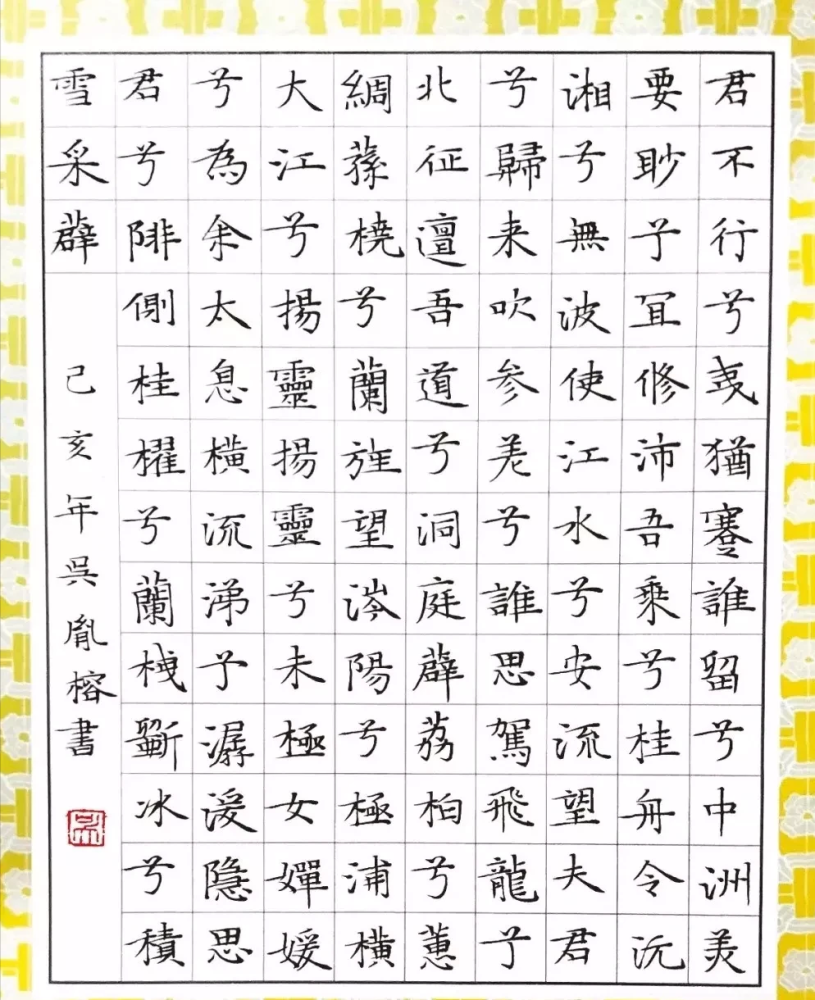 君不行兮夷猶蹇誰留兮中洲美
要眇兮宜修沛吾乘兮桂舟令沅
湘兮無波使江水兮安流望夫君
兮歸来吹参差兮誰思駕飛龍兮
北征邅吾道兮洞庭薜荔柏兮蕙
綢蓀橈兮蘭旌望涔陽兮極浦橫
大江兮揚靈揚靈兮未極女嬋媛
兮為余太息橫流涕兮潺湲隱思
君兮陫側桂櫂兮蘭枻斲冰兮積
雪采薜
己亥年吳胤榕書